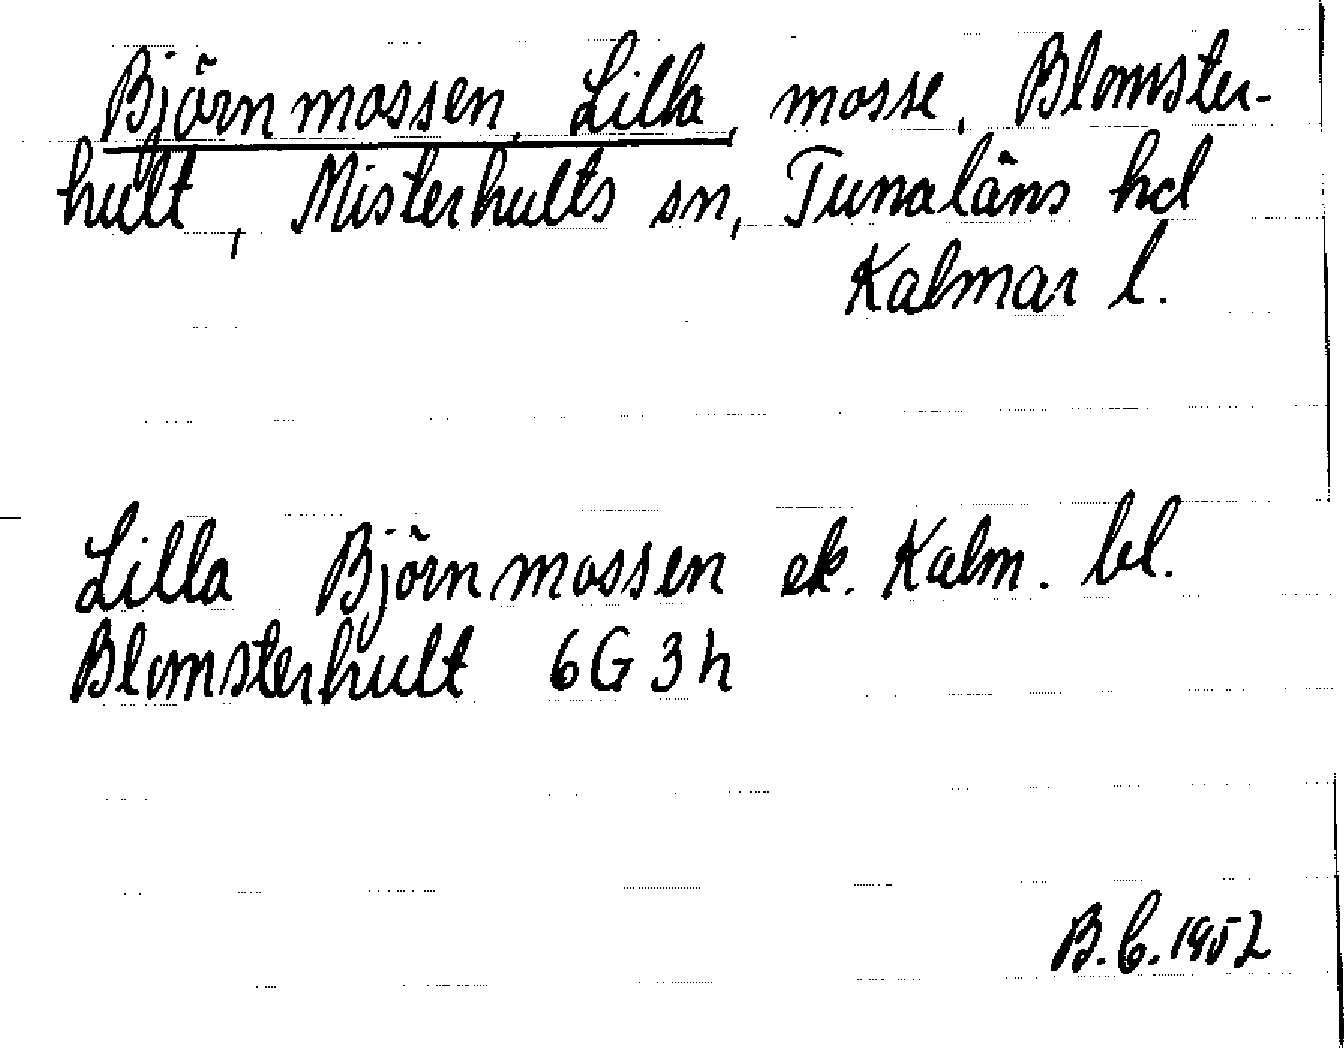 Björnmossen, Lilla, mosse, Blomster-
hult, Misterhults sn, Tunaläns hd
Kalmar l.
Lilla Björnmossen ek. Kalm. bl.
Blomsterhult 6G3h
B.C. 1952